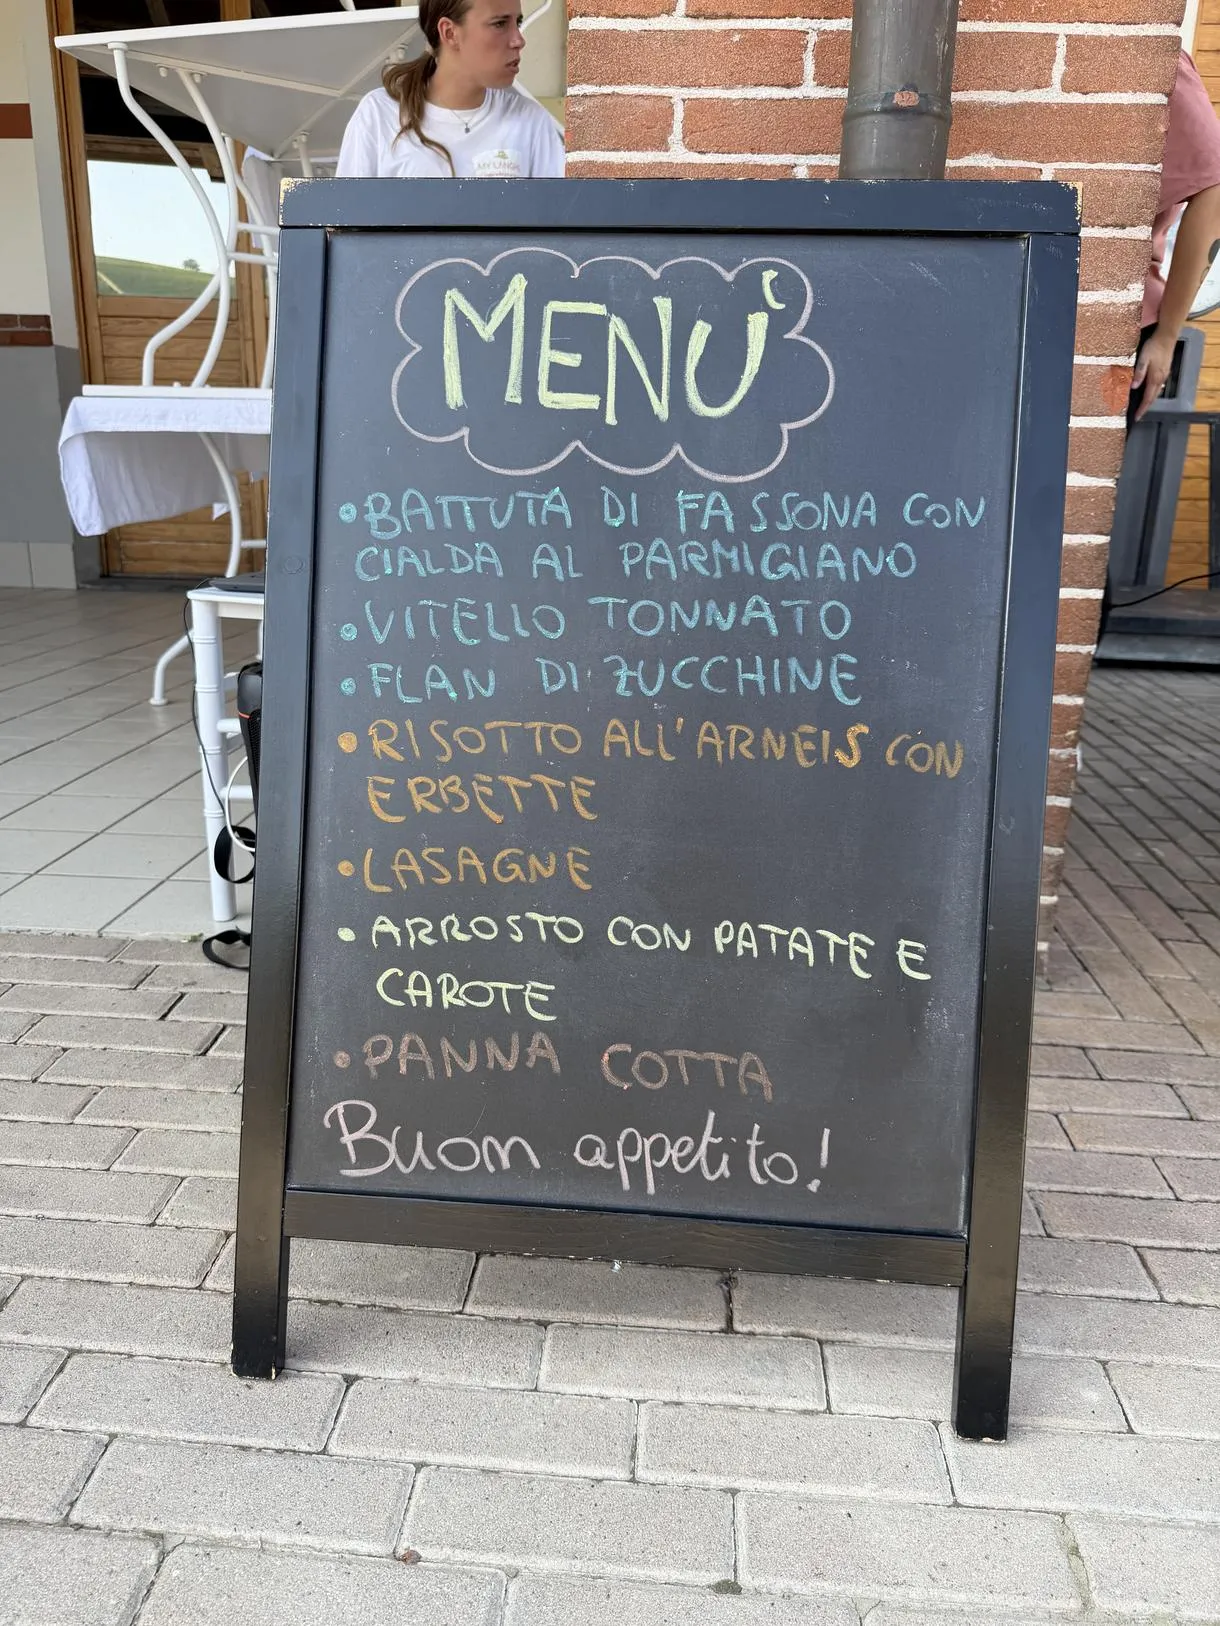 MY LANGHE
MENÙ
• BATTUTA DI FASSONA CON
CIALDA AL PARMIGIANO
• VITELLO TONNATO
• FLAN DI ZUCCHINE
• RISOTTO ALL'ARNEIS CON
ERBETTE
• LASAGNE
• ARROSTO CON PATATE E
CAROTE
• PANNA COTTA
Buon appetito!